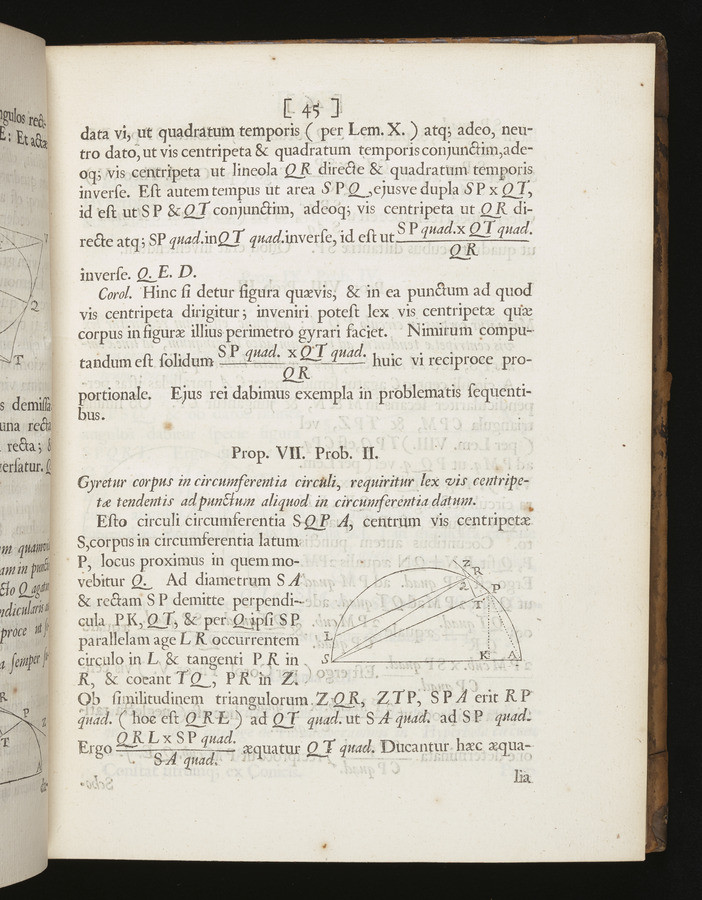 [ 45 ]
data vi, ut quadratum temporis ( per Lem. X. ) atq; adeo, neu-
tro dato, ut vis centripeta & quadratum temporis conjunctim, ade-
oq; vis centripeta ut lineola QR directe & quadratum temporis
inverse. Est autem tempus ut area SPQ, ejusve dupla SP x QT,
id est ut SP & QT conjunctim, adeoq; vis centripeta ut QR di-
recte atq; SP quad. in QT quad. inverse, id est ut SP quad. x QT quad.
QR
inverse. Q. E. D.
Corol. Hinc si detur figura quævis, & in ea punctum ad quod
vis centripeta dirigitur; inveniri potest lex vis centripetæ quæ
corpus in figuræ illius perimetro gyrari faciet. Nimirum compu-
tandum est solidum SP quad. x QT quad. huic vi reciproce pro-
QR
portionale. Ejus rei dabimus exempla in problematis sequenti-
bus.
Prop. VII. Prob. II.
Gyretur corpus in circumferentia circuli, requiritur lex vis centripe-
tæ tendentis ad punctum aliquod in circumferentia datum.
Esto circuli circumferentia SQPA, centrum vis centripetæ
S, corpus in circumferentia latum
P, locus proximus in quem mo-
vebitur Q. Ad diametrum SA
& rectam SP demitte perpendi-
cula PK, QT, & per Q ipsi SP
parallelam age LR occurrentem
circulo in L & tangenti PR in
R, & coeant TQ, PR in Z.
Z
R
Q
P
T
L
S
K
A
Ob similitudinem triangulorum ZQR, ZTP, SPA erit RP
quad. ( hoc est QRL ) ad QT quad. ut SA quad. ad SP quad.
Ergo QRL x SP quad. æquatur QT quad. Ducantur hæc æqua-
SA quad.
lia